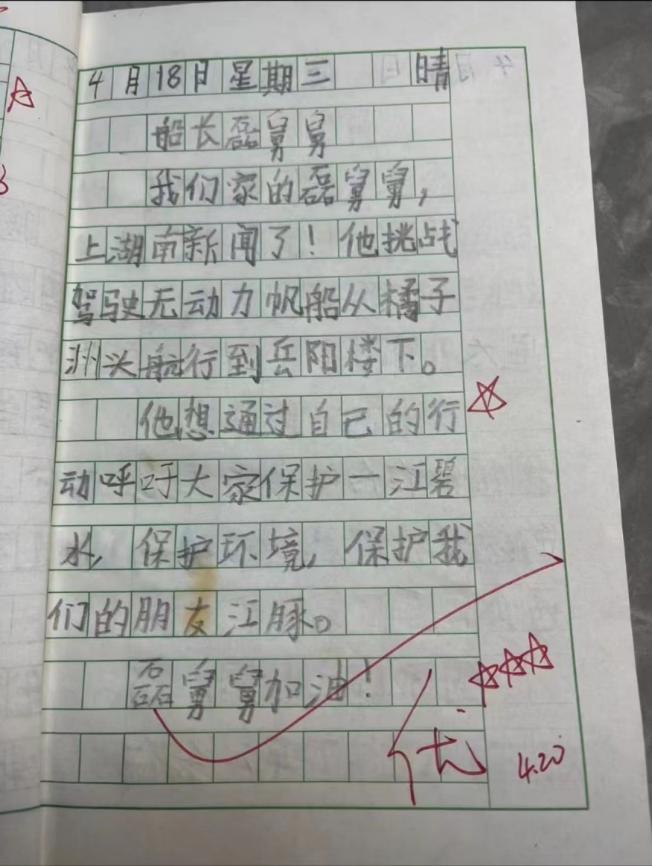 4月18日星期三 晴
船长磊舅舅
我们家的磊舅舅，
上湖南新闻了！他挑战
驾驶无动力帆船从橘子
洲头航行到岳阳楼下。
他想通过自己的行
动呼吁大家保护一江碧
水，保护环境，保护我
们的朋友江豚。
磊舅舅加油！
优
4.20